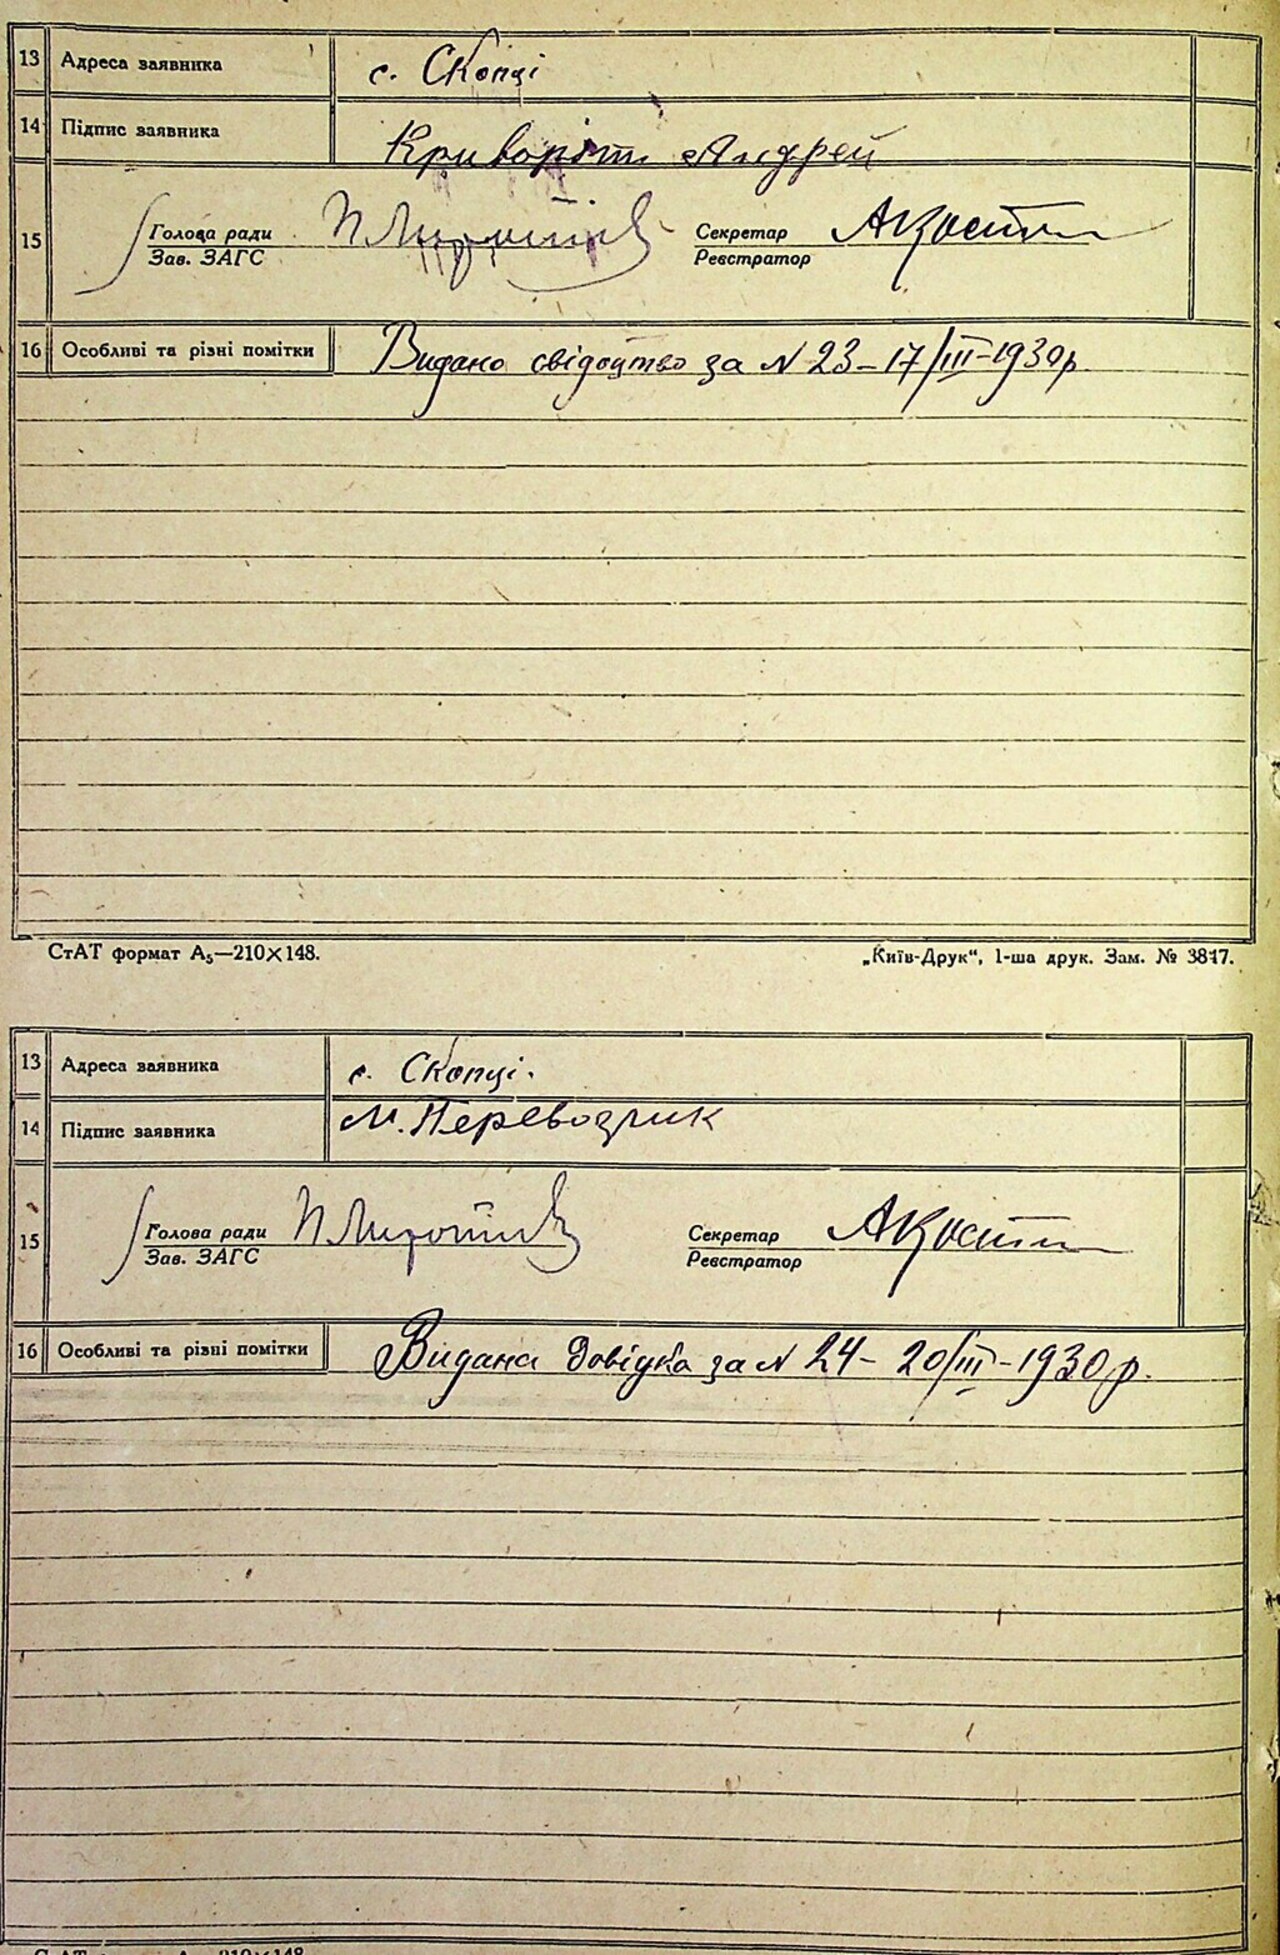 13 Адреса заявника с. Скопці
14 Підпис заявника Криворіт Андрей
15 Голова ради Секретар
Зав. ЗАГС Реєстратор
16 Особливі та різні помітки Видано свідоцтво за N 23 – 17/III – 1930 р.
СтАТ формат А₅—210×148. „Київ-Друк“, 1-ша друк. Зам. № 3817.
13 Адреса заявника с. Скопці.
14 Підпис заявника М. Перевозчик
15 Голова ради Секретар
Зав. ЗАГС Реєстратор
16 Особливі та різні помітки Видана довідка за N 24 – 20/III – 1930 р.